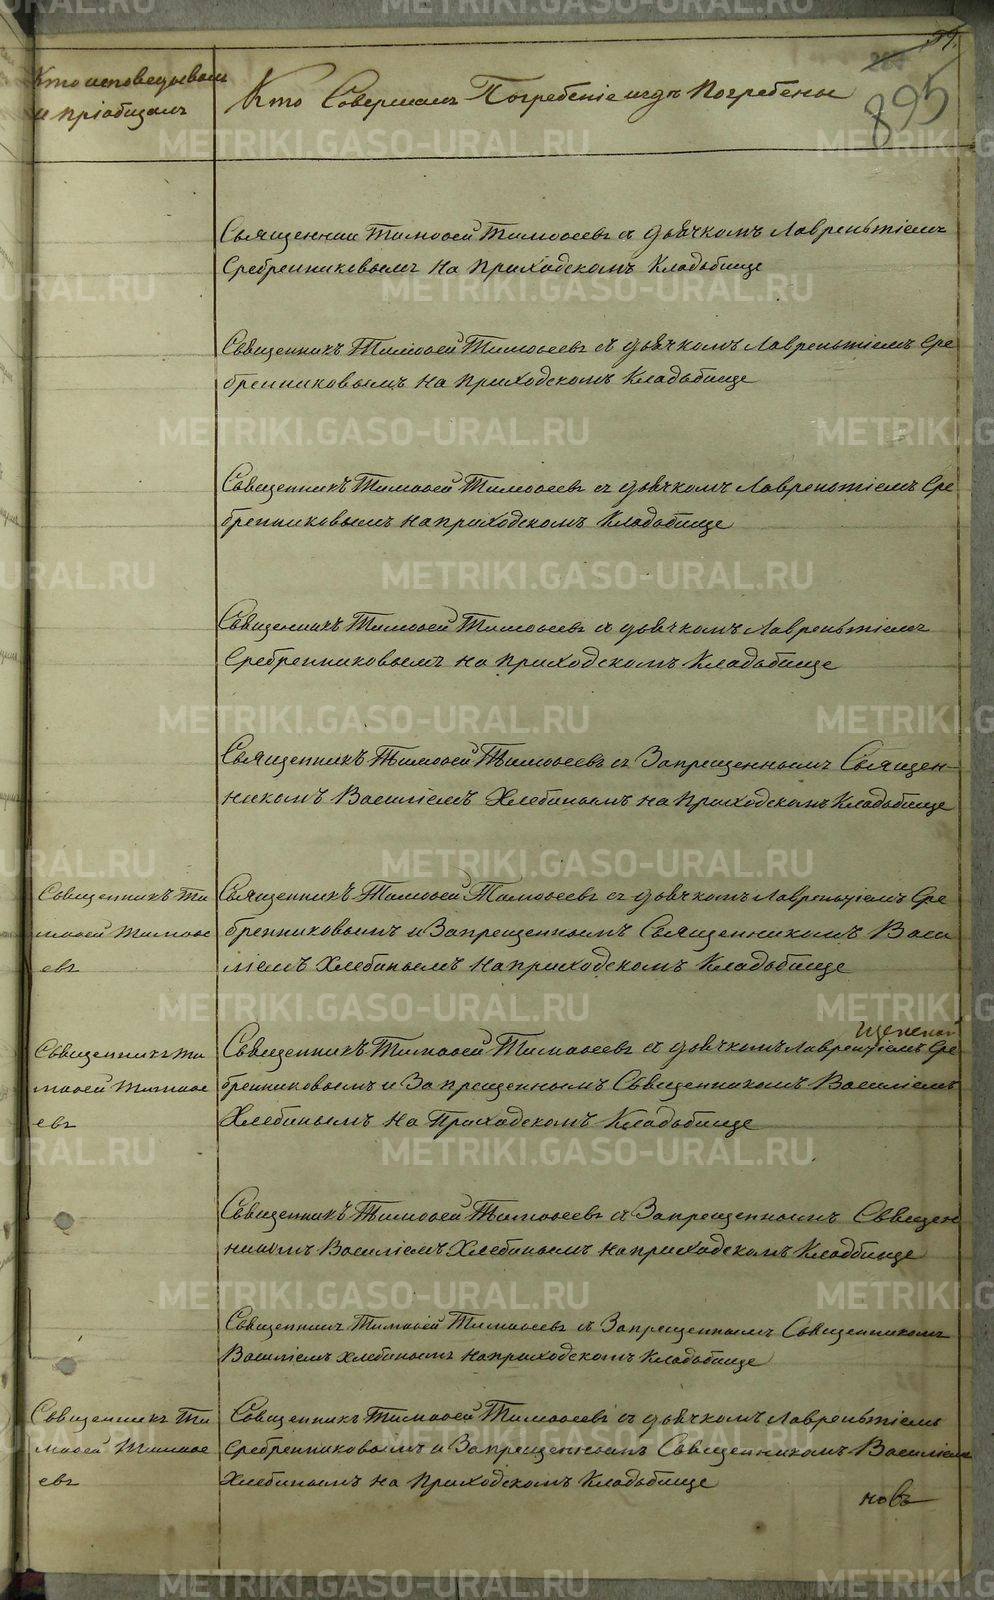 Кто исповедывалъ
и пріобщалъ
Кто Совершалъ Погребеніе и гдѣ Погребены
895
Священник Тимоѳей Тимоѳеевъ съ дьячкомъ Лаврентіемъ
Сребренниковымъ на приходскомъ Кладьбище
Священникъ Тимоѳей Тимоѳеевъ съ дьячкомъ Лаврентіемъ Сре
бренниковымъ на приходскомъ Кладьбище
Священникъ Тимоѳей Тимоѳеевъ съ дьячкомъ Лаврентіемъ Сре
бренниковымъ на приходскомъ Кладьбище
Священникъ Тимоѳей Тимоѳеевъ съ дьячкомъ Лаврентіемъ
Сребренниковымъ на приходскомъ Кладьбище
Священникъ Тимоѳей Тимоѳеевъ съ Запрещеннымъ Священ
никомъ Василіемъ Хлебинымъ на Приходскомъ Кладьбище
Священникъ Ти
моѳей Тимоѳе
евъ
Священникъ Тимоѳей Тимоѳеевъ съ дьячкомъ Лаврентіемъ Сре
бренниковымъ и Запрещеннымъ Священникомъ Васи
ліемъ Хлебинымъ на приходскомъ Кладьбище
Священникъ Ти
моѳей Тимоѳе
евъ
Священникъ Тимоѳей Тимоѳеевъ съ дьячкомъ Лаврентіемъ Сре
бренниковымъ и Запрещеннымъ Священникомъ Василіемъ
Хлебинымъ на Приходскомъ Кладьбище
Священникъ Тимоѳей Тимоѳеевъ съ Запрещеннымъ Священ
никомъ Василіемъ Хлебинымъ на приходскомъ Кладбище
Священникъ Тимоѳей Тимоѳеевъ съ Запрещеннымъ Священникомъ
Василіемъ Хлебинымъ на приходскомъ Кладьбище
Священникъ Ти
моѳей Тимоѳе
евъ
Священникъ Тимоѳей Тимоѳеевъ съ дьячкомъ Лаврентіемъ
Сребренниковымъ и Запрещеннымъ Священникомъ Василіемъ
Хлебинымъ на Приходскомъ Кладьбище
новъ
METRIKI.GASO-URAL.RU